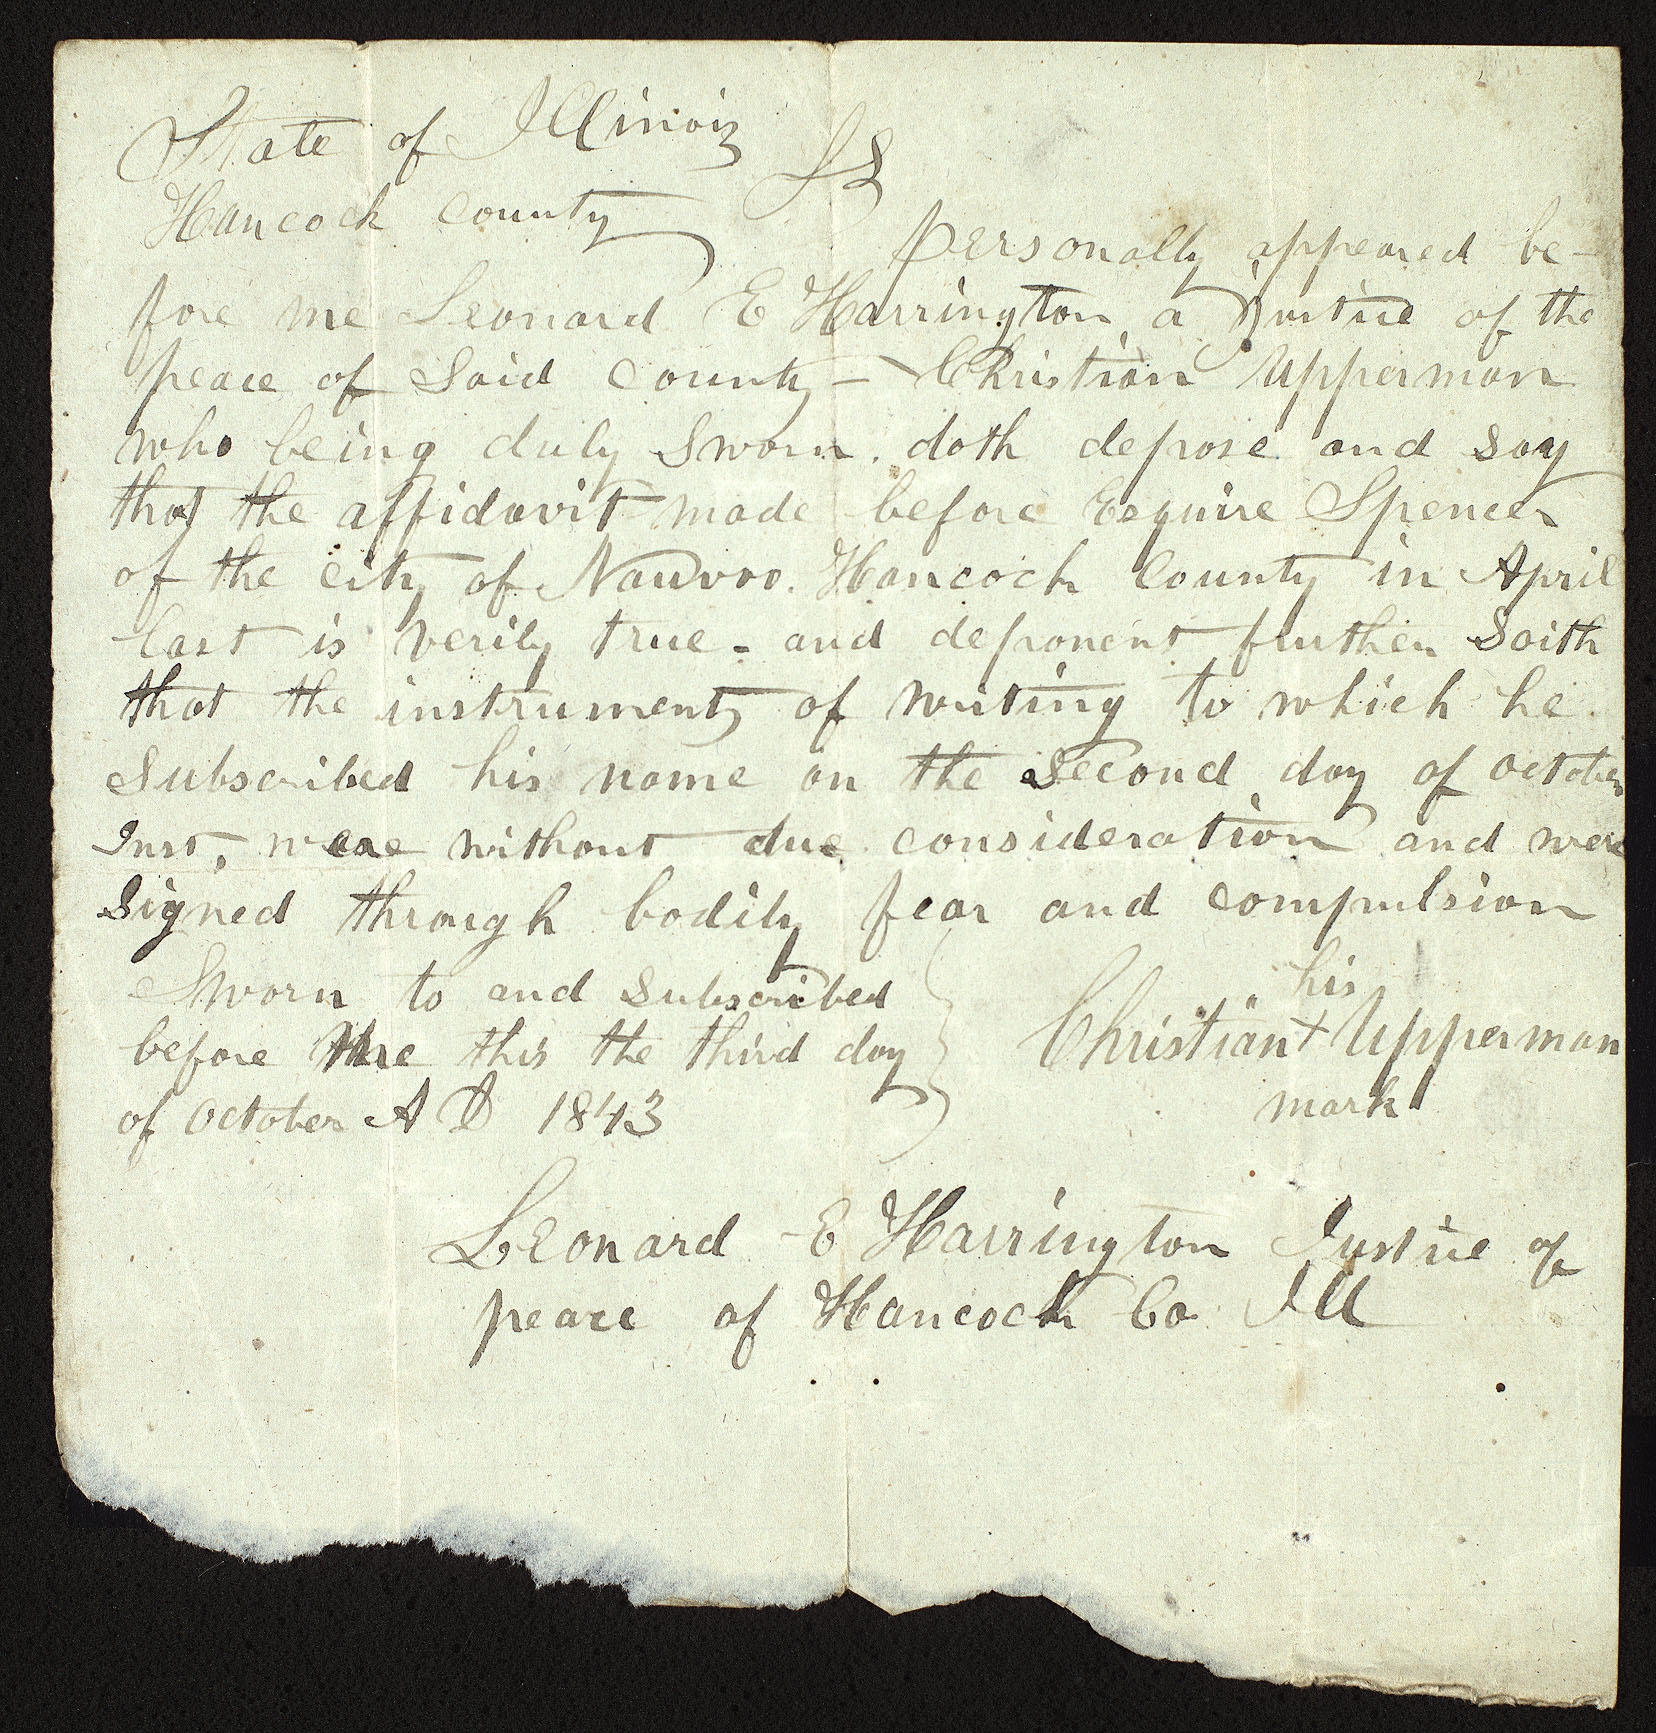 State of Illinois
SS
Hancock County
personally appeared be-
fore me Leonard E Harrington, a Justice of the
peace of Said County - Christian Upperman
who being duly Sworn. doth depose and Say
that the affidavit made before Esquire Spencer
of the City of Nauvoo. Hancock County in April
last is verily true - and deponent further Saith
that the instruments of writing to which he
Subscribed his name on the Second day of October
Inst, were without due consideration and were
Signed through bodily fear and compulsion
Sworn to and Subscribed
before me this the third day
of October A D 1843
his
Christian + Upperman
mark
Leonard E Harrington Justice of
peace of Hancock Co Ill